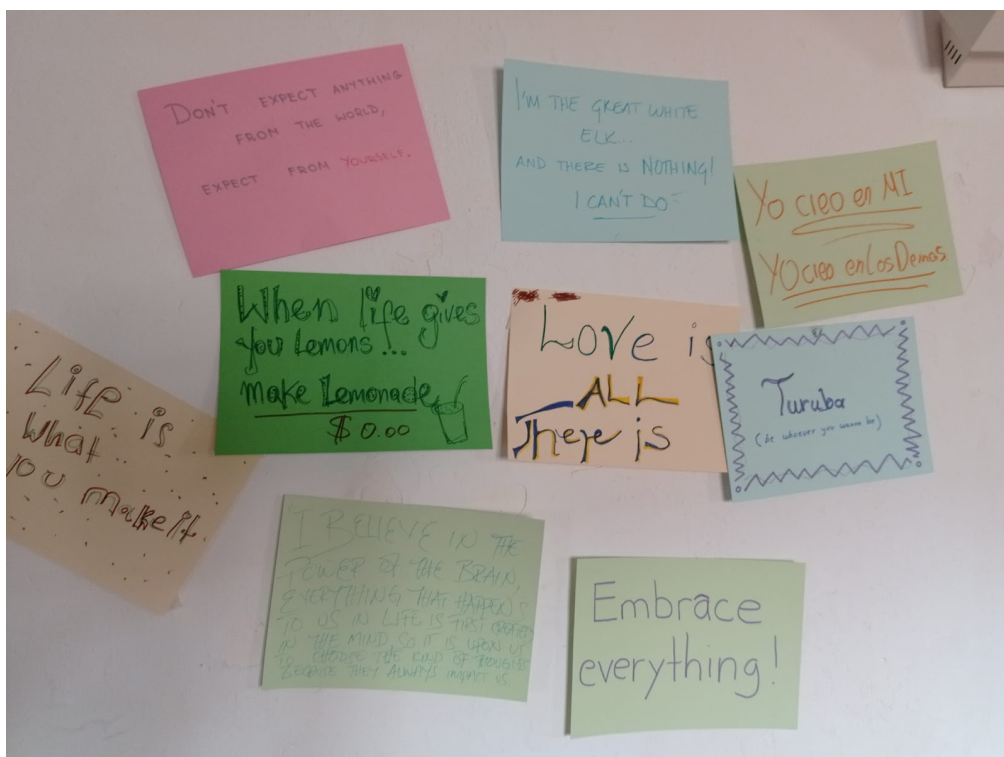 DON'T EXPECT ANYTHING
FROM THE WORLD,
EXPECT FROM YOURSELF.
I'M THE GREAT WHITE
ELK...
AND THERE IS NOTHING!
I CAN'T DO
Yo creo en MI
YO creo en Los Demas
When life gives
you Lemons...
make Lemonade
$ 0.00
LOVE is
ALL
There is
Turuba
(be whoever you wanna be)
Life is
What
you make it
I BELIEVE IN THE
POWER OF THE BRAIN,
EVERYTHING THAT HAPPENS
TO US IN LIFE IS FIRST CREATED
IN THE MIND, SO IT IS UPON US
TO CHOOSE THE KIND OF THOUGHTS
BECAUSE THEY ALWAYS IMPACT US.
Embrace
everything!